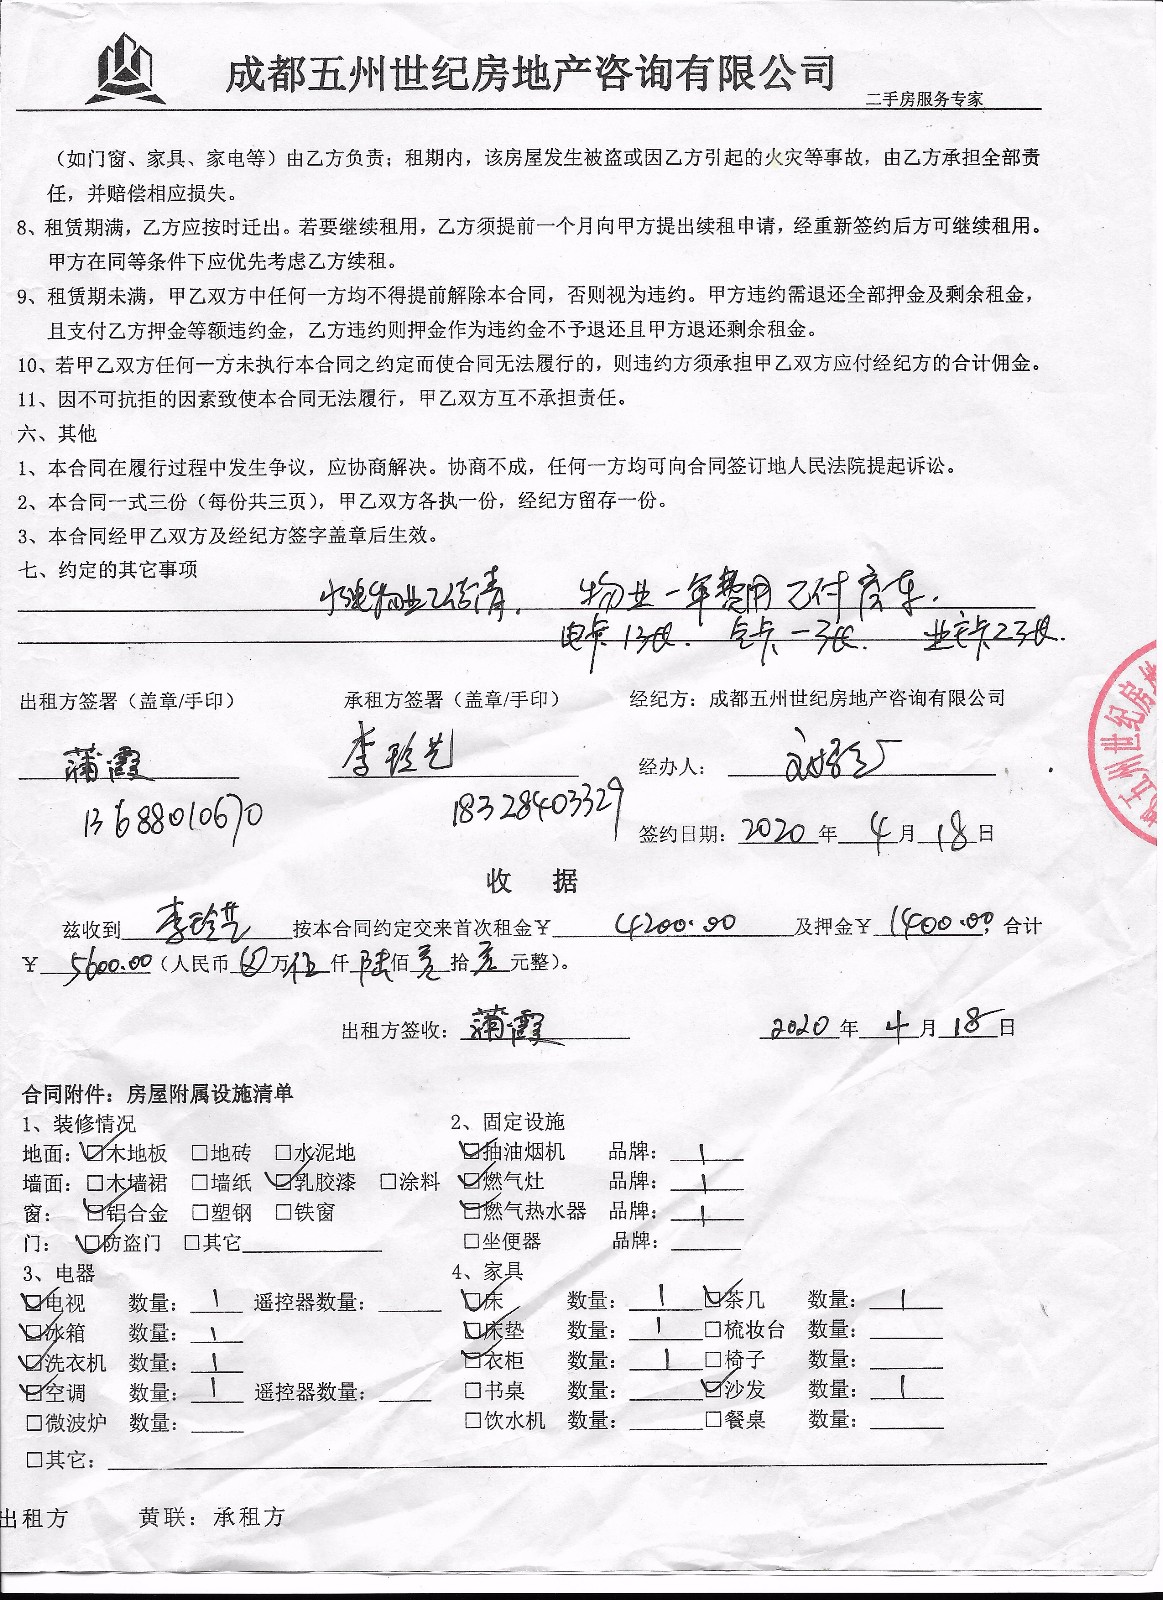 成都五州世纪房地产咨询有限公司
二手房服务专家
（如门窗、家具、家电等）由乙方负责；租期内，该房屋发生被盗或因乙方引起的火灾等事故，由乙方承担全部责
任，并赔偿相应损失。
8、租赁期满，乙方应按时迁出。若要继续租用，乙方须提前一个月向甲方提出续租申请，经重新签约后方可继续租用。
甲方在同等条件下应优先考虑乙方续租。
9、租赁期未满，甲乙双方中任何一方均不得提前解除本合同，否则视为违约。甲方违约需退还全部押金及剩余租金，
且支付乙方押金等额违约金，乙方违约则押金作为违约金不予退还且甲方退还剩余租金。
10、若甲乙双方任何一方未执行本合同之约定而使合同无法履行的，则违约方须承担甲乙双方应付经纪方的合计佣金。
11、因不可抗拒的因素致使本合同无法履行，甲乙双方互不承担责任。
六、其他
1、本合同在履行过程中发生争议，应协商解决。协商不成，任何一方均可向合同签订地人民法院提起诉讼。
2、本合同一式三份（每份共三页），甲乙双方各执一份，经纪方留存一份。
3、本合同经甲乙双方及经纪方签字盖章后生效。
七、约定的其它事项
物业乙结清. 物业一年费用乙付
电卡1张. 气卡一张. 业主卡2张.
出租方签署（盖章/手印） 承租方签署（盖章/手印） 经纪方：成都五州世纪房地产咨询有限公司
蒲霞 李玲艺 经办人：
13688010670 18328403329
签约日期：2020年4月18日
五州世纪房地
收 据
兹收到 李玲艺 按本合同约定交来首次租金￥ 4200.00 及押金￥ 1400.00 合计
￥ 5600.00（人民币 万伍仟陆佰 拾 元整）。
出租方签收：蒲霞 2020年4月18日
合同附件：房屋附属设施清单
1、装修情况 2、固定设施
地面：☑木地板 □地砖 □水泥地 ☑抽油烟机 品牌：1
墙面：□木墙裙 □墙纸 ☑乳胶漆 □涂料 ☑燃气灶 品牌：1
窗：☑铝合金 □塑钢 □铁窗 ☑燃气热水器 品牌：1
门：☑防盗门 □其它 □坐便器 品牌：
3、电器 4、家具
☑电视 数量：1 遥控器数量： ☑床 数量：1 ☑茶几 数量：1
☑冰箱 数量：1 ☑床垫 数量：1 □梳妆台 数量：
☑洗衣机 数量：1 ☑衣柜 数量：1 □椅子 数量：
☑空调 数量：1 遥控器数量： □书桌 数量： ☑沙发 数量：1
□微波炉 数量： □饮水机 数量： □餐桌 数量：
□其它：
出租方 黄联：承租方